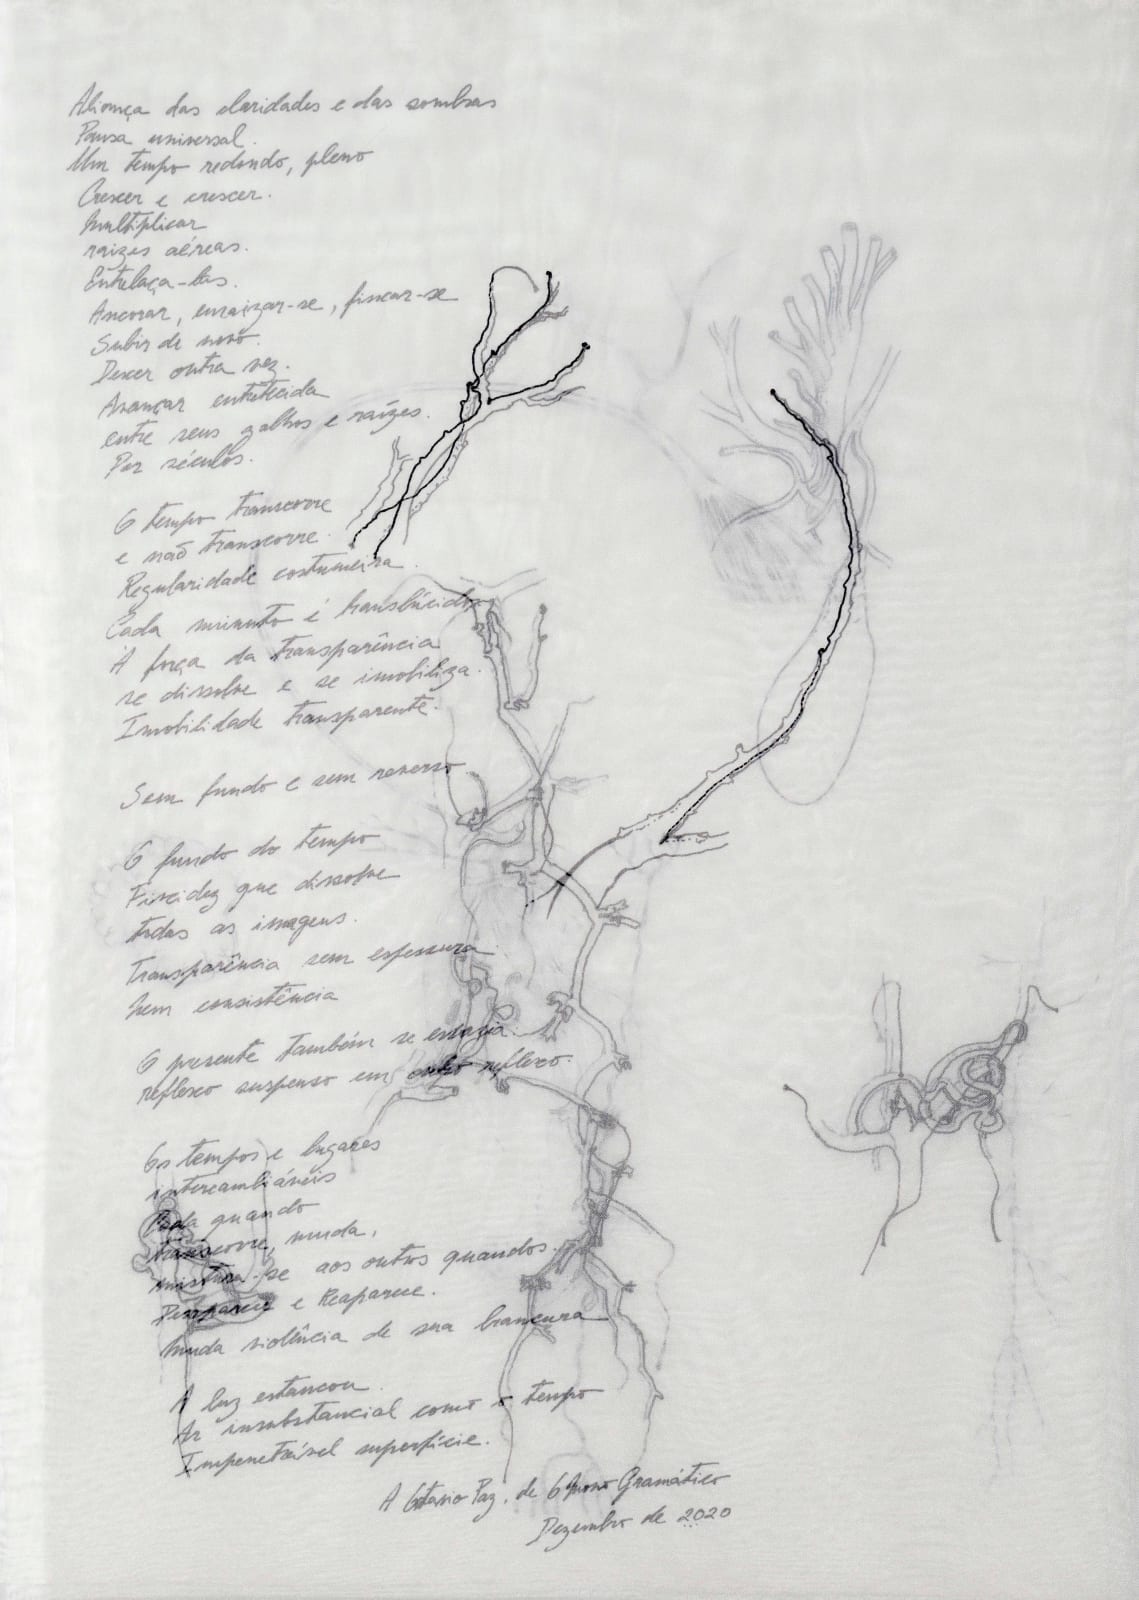 Aliança das claridades e das sombras
Pausa universal.
Um tempo redondo, pleno
Crescer e crescer.
Multiplicar
raizes aéreas.
Entrelaça-las.
Ancorar, enraizar-se, fincar-se
Subir de novo.
Descer outra vez.
Avançar entretecida
entre seus galhos e raízes.
Por séculos.
O tempo transcorre
e não transcorre.
Regularidade costumeira.
Cada minuto é translúcido
A força da transparência
se dissolve e se imobiliza.
Imobilidade transparente.
Sem fundo e sem reverso
O fundo do tempo
Fixidez que dissolve
todas as imagens.
Transparência sem espessura
nem consistência
O presente também se esvazia.
reflexo suspenso em outro reflexo.
Os tempos e lugares
intercambiáveis
Cada quando
transcorre, muda,
mistura-se aos outros quandos.
Desaparece e Reaparece.
muda violência de sua brancura
A luz estancou.
Ar insubstancial como o tempo
Impenetrável superfície.
A Octavio Paz, de O Mono Gramático
Dezembro de 2020